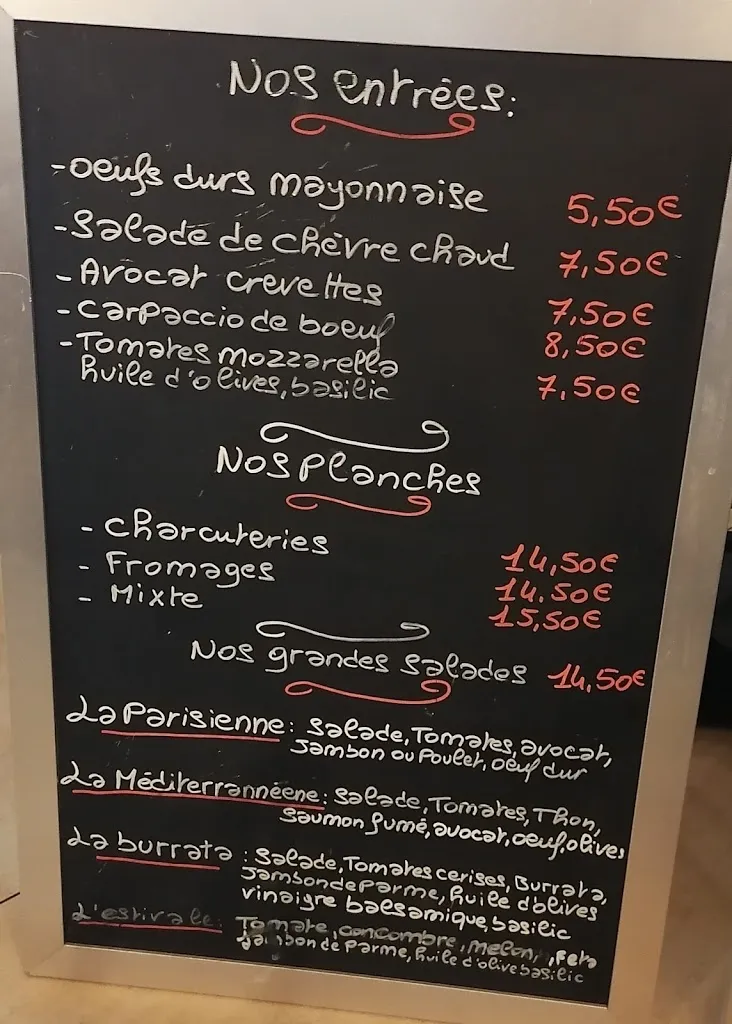 Nos entrées:
-oeufs durs mayonnaise 5,50€
-Salade de chèvre chaud 7,50€
-Avocat crevettes 7,50€
-carpaccio de boeuf 8,50€
-Tomates mozzarella
huile d'olives, basilic 7,50€
Nos Planches
- charcuteries 14,50€
- Fromages 14.50€
- Mixte 15,50€
Nos grandes salades 14,50€
La Parisienne: Salade, Tomates, avocat,
Jambon ou Poulet, oeuf dur
La Méditerrannéene: Salade, Tomates, Thon,
Saumon fumé, avocat, oeuf, olives
La burrata: Salade, Tomates cerises, Burrata,
Jambon de Parme, huile d'olives
vinaigre balsamique, basilic
L'estivale: Tomate, concombre, melon, , Feta
Jambon de Parme, huile d'olive basilic